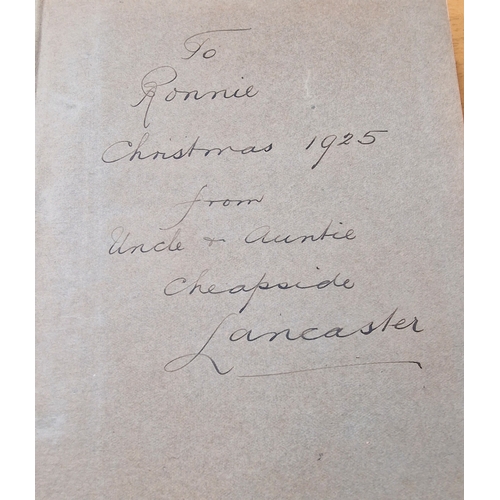 To
Ronnie
Christmas 1925
from
Uncle + Auntie
Cheapside
Lancaster